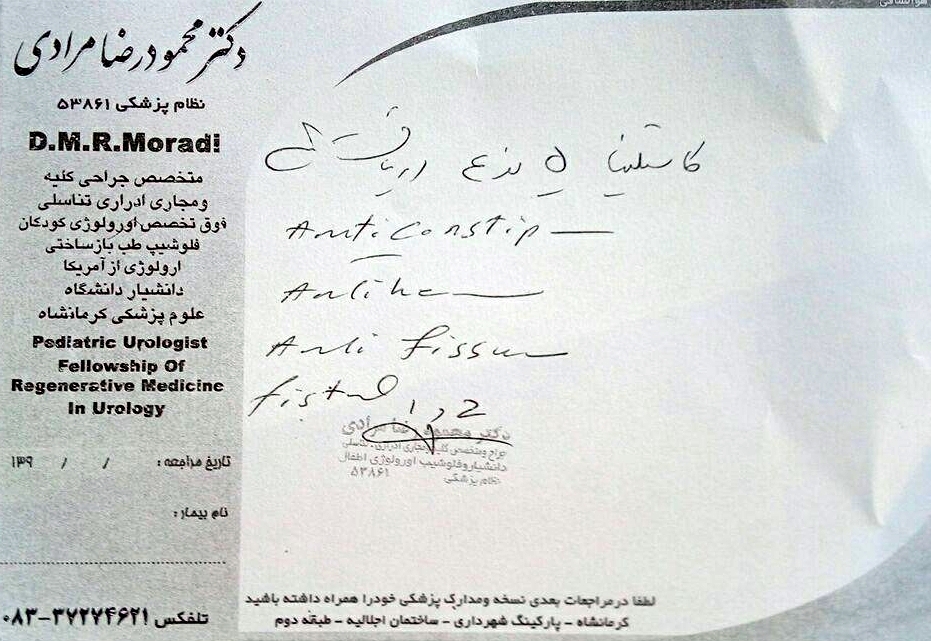 دکتر محمودرضا مرادی
نظام پزشکی ۵۳۸۶۱
D.M.R.Moradi
متخصص جراحی کلیه
ومجاری ادراری تناسلی
فوق تخصص اورولوژی کودکان
فلوشیپ طب بازساختی
ارولوژی از آمریکا
دانشیار دانشگاه
علوم پزشکی کرمانشاه
Pediatric Urologist
Fellowship Of
Regenerative Medicine
In Urology
تاریخ مراجعه: / / ۱۳۹
نام بیمار:
تلفکس ۰۸۳-۳۷۲۷۴۶۲۱
Anti Constip
Anti he
Anti fissu
fistul 1, 2
دکتر محمودرضا مرادی
جراح ومتخصص کلیه ومجاری ادراری تناسلی
دانشیار وفلوشیپ اورولوژی اطفال
نظام پزشکی ۵۳۸۶۱
لطفا در مراجعات بعدی نسخه ومدارک پزشکی خودرا همراه داشته باشید
کرمانشاه - پارکینگ شهرداری - ساختمان اجلالیه - طبقه دوم